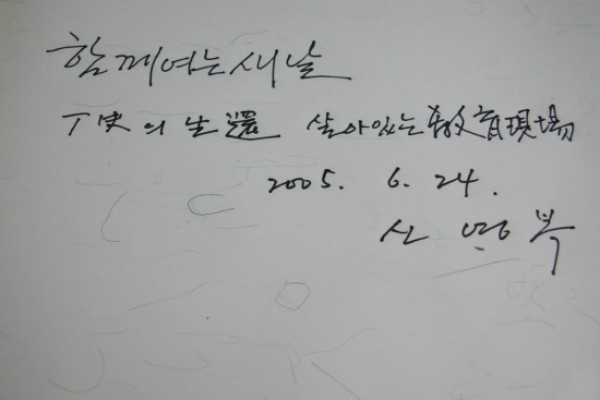 함께여는새날
厂史의 生還 살아있는 敎育現場
2005. 6. 24.
신영복